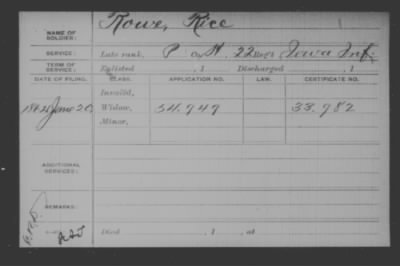 Rowe, Rice
NAME OF SOLDIER:
SERVICE: Late rank, P Co. H, 22 Reg't Iowa Inf.
TERM OF SERVICE: Enlisted , 1 Discharged , 1
DATE OF FILING. CLASS. APPLICATION NO. LAW. CERTIFICATE NO.
Invalid,
1864 June 20 Widow, 54.949 33.982
Minor,
ADDITIONAL SERVICES:
REMARKS:
Died , 1 , at